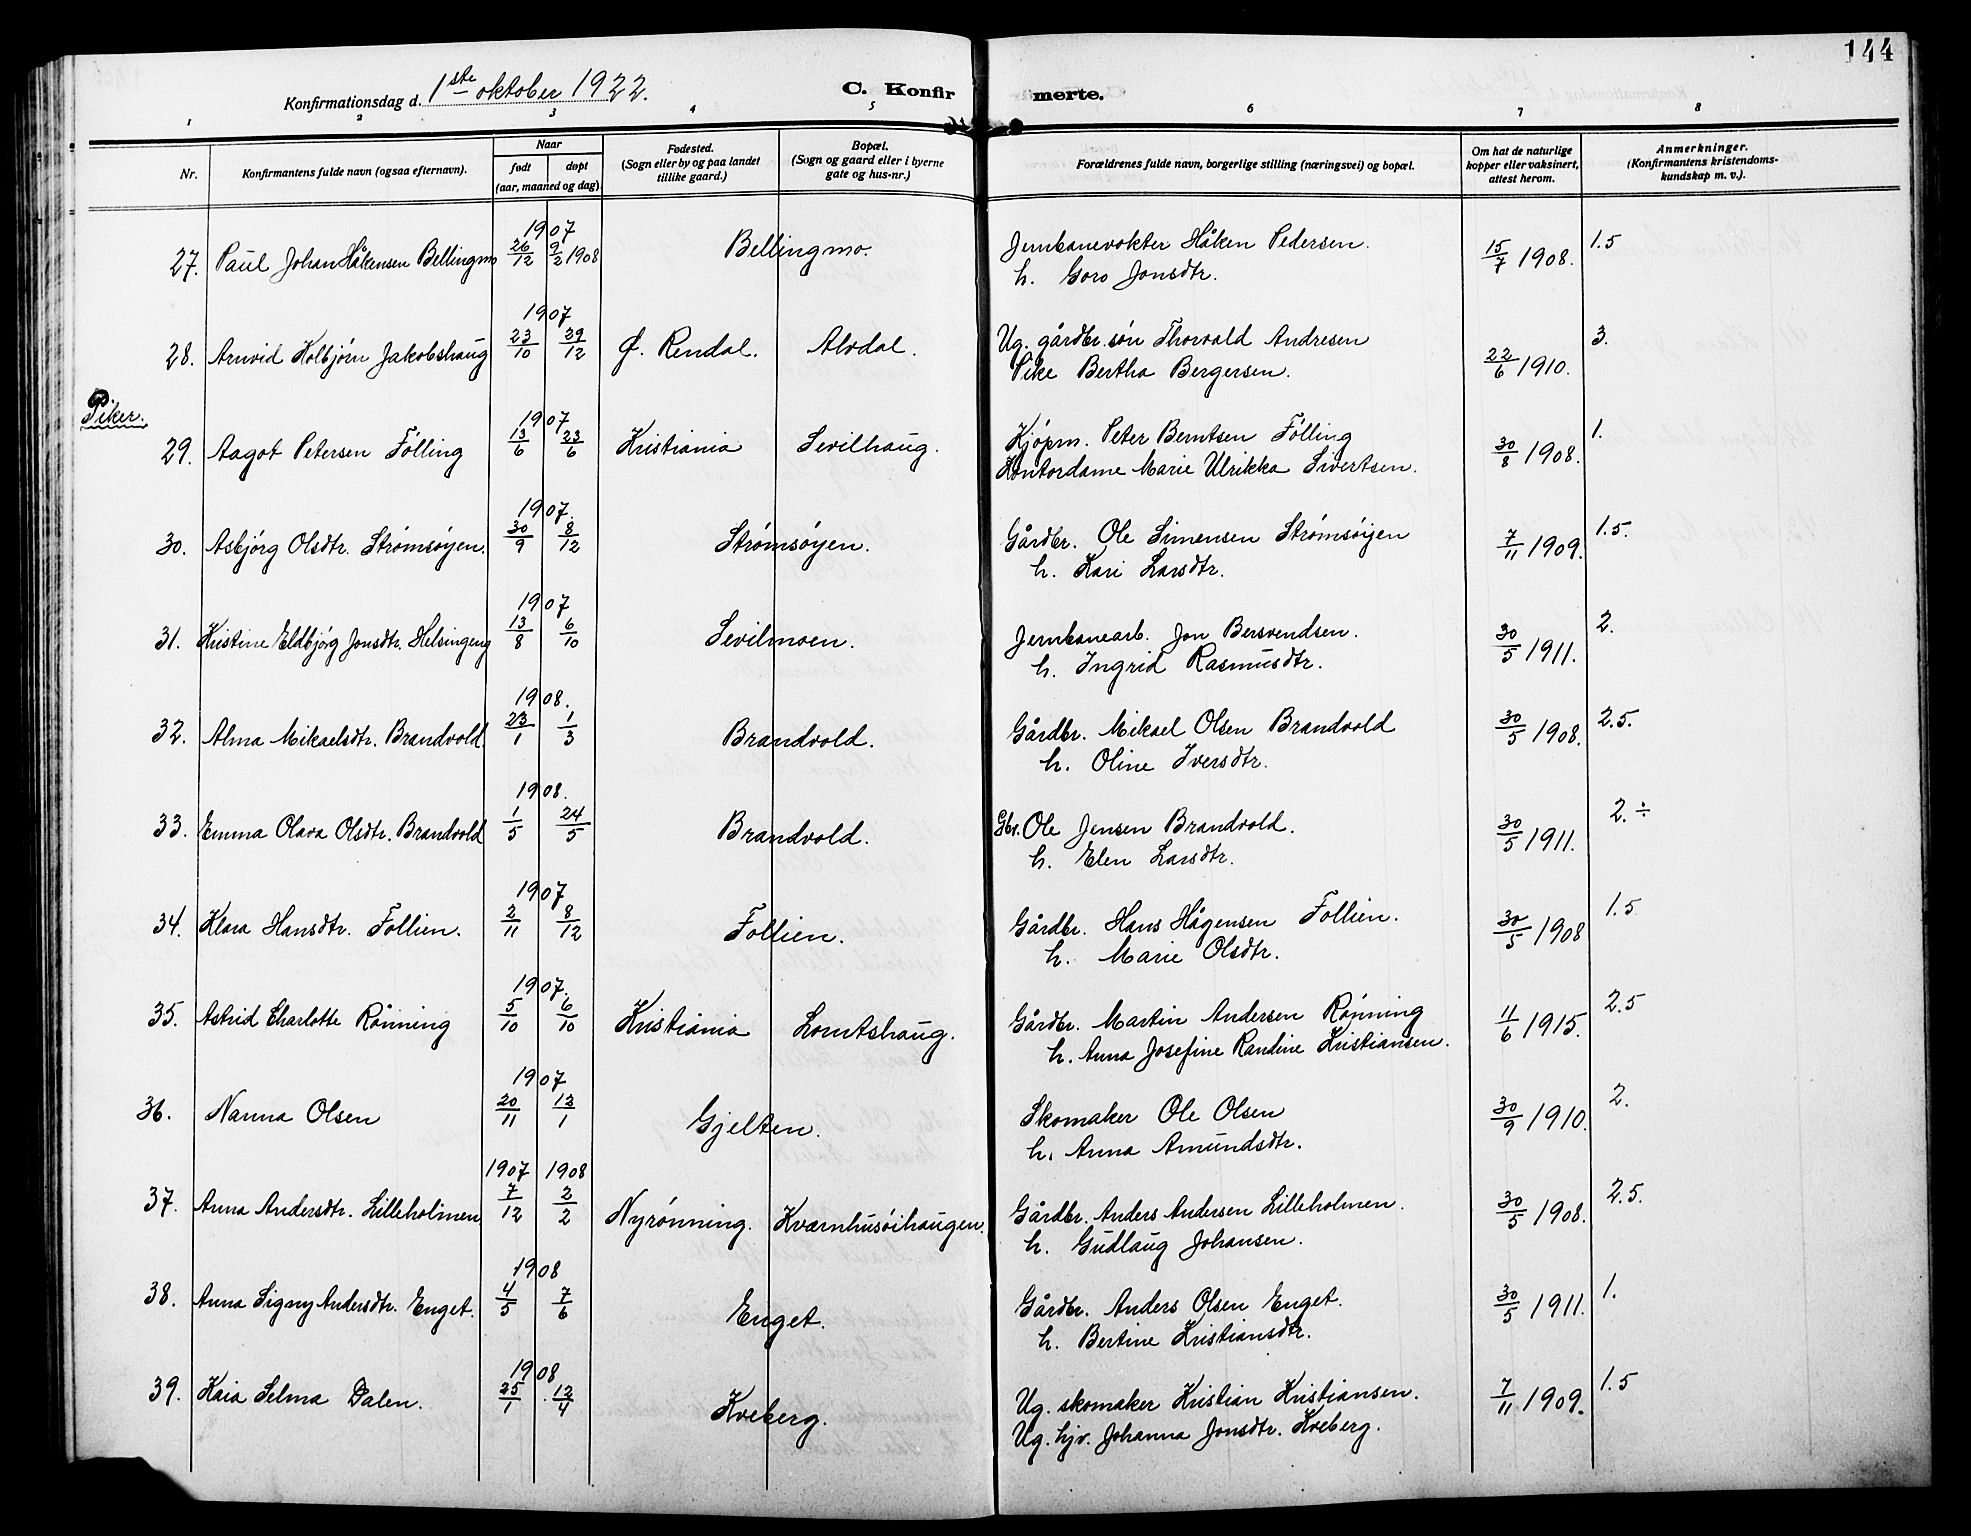 144
Konfirmationsdag d. 1ste oktober 1922. C. Konfirmerte.
1 2 3 4 5 6 7 8
Nr. Konfirmantens fulde navn (ogsaa efternavn). Naar født døpt (aar, maaned og dag) Fødested. (Sogn eller by og paa landet tillike gaard.) Bopæl. (Sogn og gaard eller i byerne gate og hus-nr.) Forældrenes fulde navn, borgerlige stilling (næringsvei) og bopæl. Om hat de naturlige kopper eller vaksinert, attest herom. Anmerkninger. (Konfirmantens kristendoms-kundskap m. v.).
1907
27. Paul Johan Håkensen Bellingmo 26/12 9/2 1908 Bellingmo. Jernbanevokter Håken Pedersen. 15/7 1908. 1.5
h. Goro Jonsdtr.
1907
28. Arnvid Kolbjørn Jakobshaug 23/10 29/12 Ø. Rendal. Alvdal. Ug. gårdbr. søn Thorvald Andresen 22/6 1910. 3.
Pike Bertha Bergersen.
Piker.
1907
29. Aagot Petersen Fölling 13/6 23/6 Kristiania Sevilhaug. Kjøpm. Peter Berntsen Fölling 30/8 1908. 1.
Kontordame Marie Ulrikka Sivertsen.
1907.
30. Asbjörg Olsdtr. Strømsøyen. 30/9 8/12 Strømsøyen. Gårdbr. Ole Simensen Strømsøyen 7/11 1909. 1.5.
h. Kari Larsdtr.
1907
31. Kristine Eldbjörg Jonsdtr. Helsingeng 13/8 6/10 Sevilmoen. Jernbanearb. Jon Bersvendsen. 30/5 1911. 2.
h. Ingrid Rasmusdtr.
1908.
32. Alma Mikaelsdtr. Brandvold. 23/1 1/3 Brandvold. Gårdbr. Mikael Olsen Brandvold 30/5 1908. 2.5.
h. Oline Iversdtr.
1908.
33. Emma Olava Olsdtr. Brandvold 1/5 24/5 Brandvold. Gbr. Ole Jensen Brandvold. 30/5 1911. 2. ÷
h. Elen Larsdtr.
1907
34. Klara Hansdtr. Follien. 2/11 8/12 Follien. Gårdbr. Hans Hågensen Follien. 30/5 1908 1.5
h. Marie Olsdtr.
1907.
35. Astrid Charlotte Rønning 5/10 6/10 Kristiania Lomtshaug. Gårdbr. Martin Andersen Rønning 11/6 1915. 2.5
h. Anna Josefine Randine Kristiansen.
1907
36. Nanna Olsen 20/11 12/1 Gjelten. Skomaker Ole Olsen 30/9 1910. 2.
h. Anna Amundsdtr.
1907 1908
37. Anna Andersdtr. Lilleholmen 7/12 2/2 Nyrønning. Kværnhusøihaugen. Gårdbr. Anders Andersen Lilleholmen. 30/5 1908. 2.5.
h. Gudlaug Johansen.
1908
38. Anna Signy Andersdtr. Enget. 4/5 7/6 Enget. Gårdbr. Anders Olsen Enget. 30/5 1911. 1.
h. Bertine Kristiansdtr.
1908
39. Kaia Selma Dalen. 25/1 12/4 Kveberg. Ug. skomaker Kristian Kristiansen. 7/11 1909. 1.5
Ug. hjv. Johanna Jonsdtr. Kveberg.